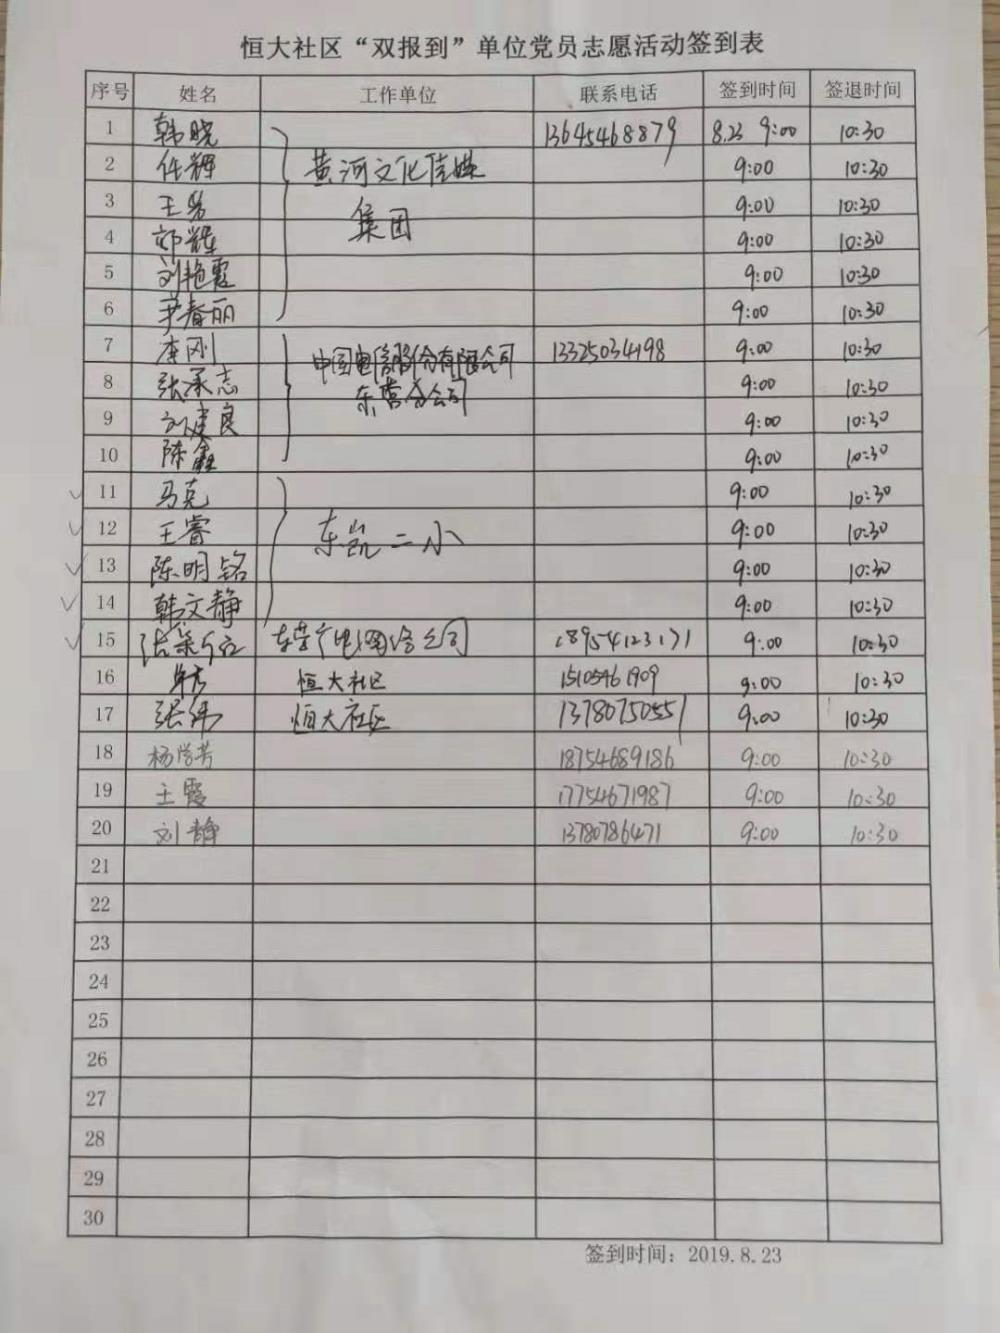 恒大社区“双报到”单位党员志愿活动签到表
序号 姓名 工作单位 联系电话 签到时间 签退时间
1 韩晓 13645468879 8.23 9:00 10:30
2 任辉 黄河文化传媒 9:00 10:30
3 王岩 集团 9:00 10:30
4 郑辉 9:00 10:30
5 刘艳霞 9:00 10:30
6 尹春丽 9:00 10:30
7 李刚 中国电信股份有限公司 13325034198 9:00 10:30
8 张承志 东营分公司 9:00 10:30
9 刘建良 9:00 10:30
10 陈鑫 9:00 10:30
11 马克 9:00 10:30
12 王睿 东凯二小 9:00 10:30
13 陈明铭 9:00 10:30
14 韩文静 9:00 10:30
15 东营广电网络公司 18954123171 9:00 10:30
16 恒大社区 15105461909 9:00 10:30
17 张伟 恒大社区 13780750551 9:00 10:30
18 杨学芳 18754689186 9:00 10:30
19 王霞 17754671987 9:00 10:30
20 刘静 13780786471 9:00 10:30
21
22
23
24
25
26
27
28
29
30
签到时间：2019.8.23